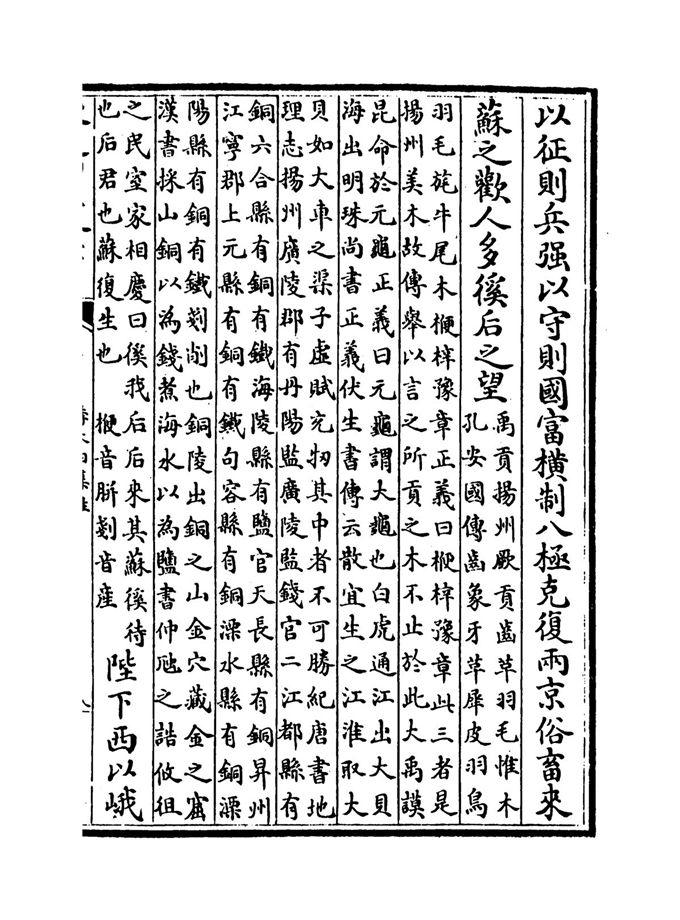 以征則兵强以守則國富橫制八極克復兩京俗畜來
蘇之歡人多徯后之望
禹貢揚州厥貢齒革羽毛惟木
孔安國傳齒象牙革犀皮羽鳥
羽毛旄牛尾木楩梓豫章正義曰楩梓豫章此三者是
揚州美木故傳舉以言之所貢之木不止於此大禹謨
昆命於元龜正義曰元龜謂大龜也白虎通江出大貝
海出明珠尚書正義伏生書傳云散宜生之江淮取大
貝如大車之渠子虛賦充牣其中者不可勝紀唐書地
理志揚州廣陵郡有丹陽監廣陵監錢官二江都縣有
銅六合縣有銅有鐵海陵縣有鹽官天長縣有銅昇州
江寧郡上元縣有銅有鐵句容縣有銅溧水縣有銅溧
陽縣有銅有鐵剗削也銅陵出銅之山金穴藏金之窟
漢書採山銅以為錢煮海水以為鹽書仲虺之誥攸徂
之民室家相慶曰徯我后后來其蘇徯待
也后君也蘇復生也 楩音胼剗音産
陛下西以峨